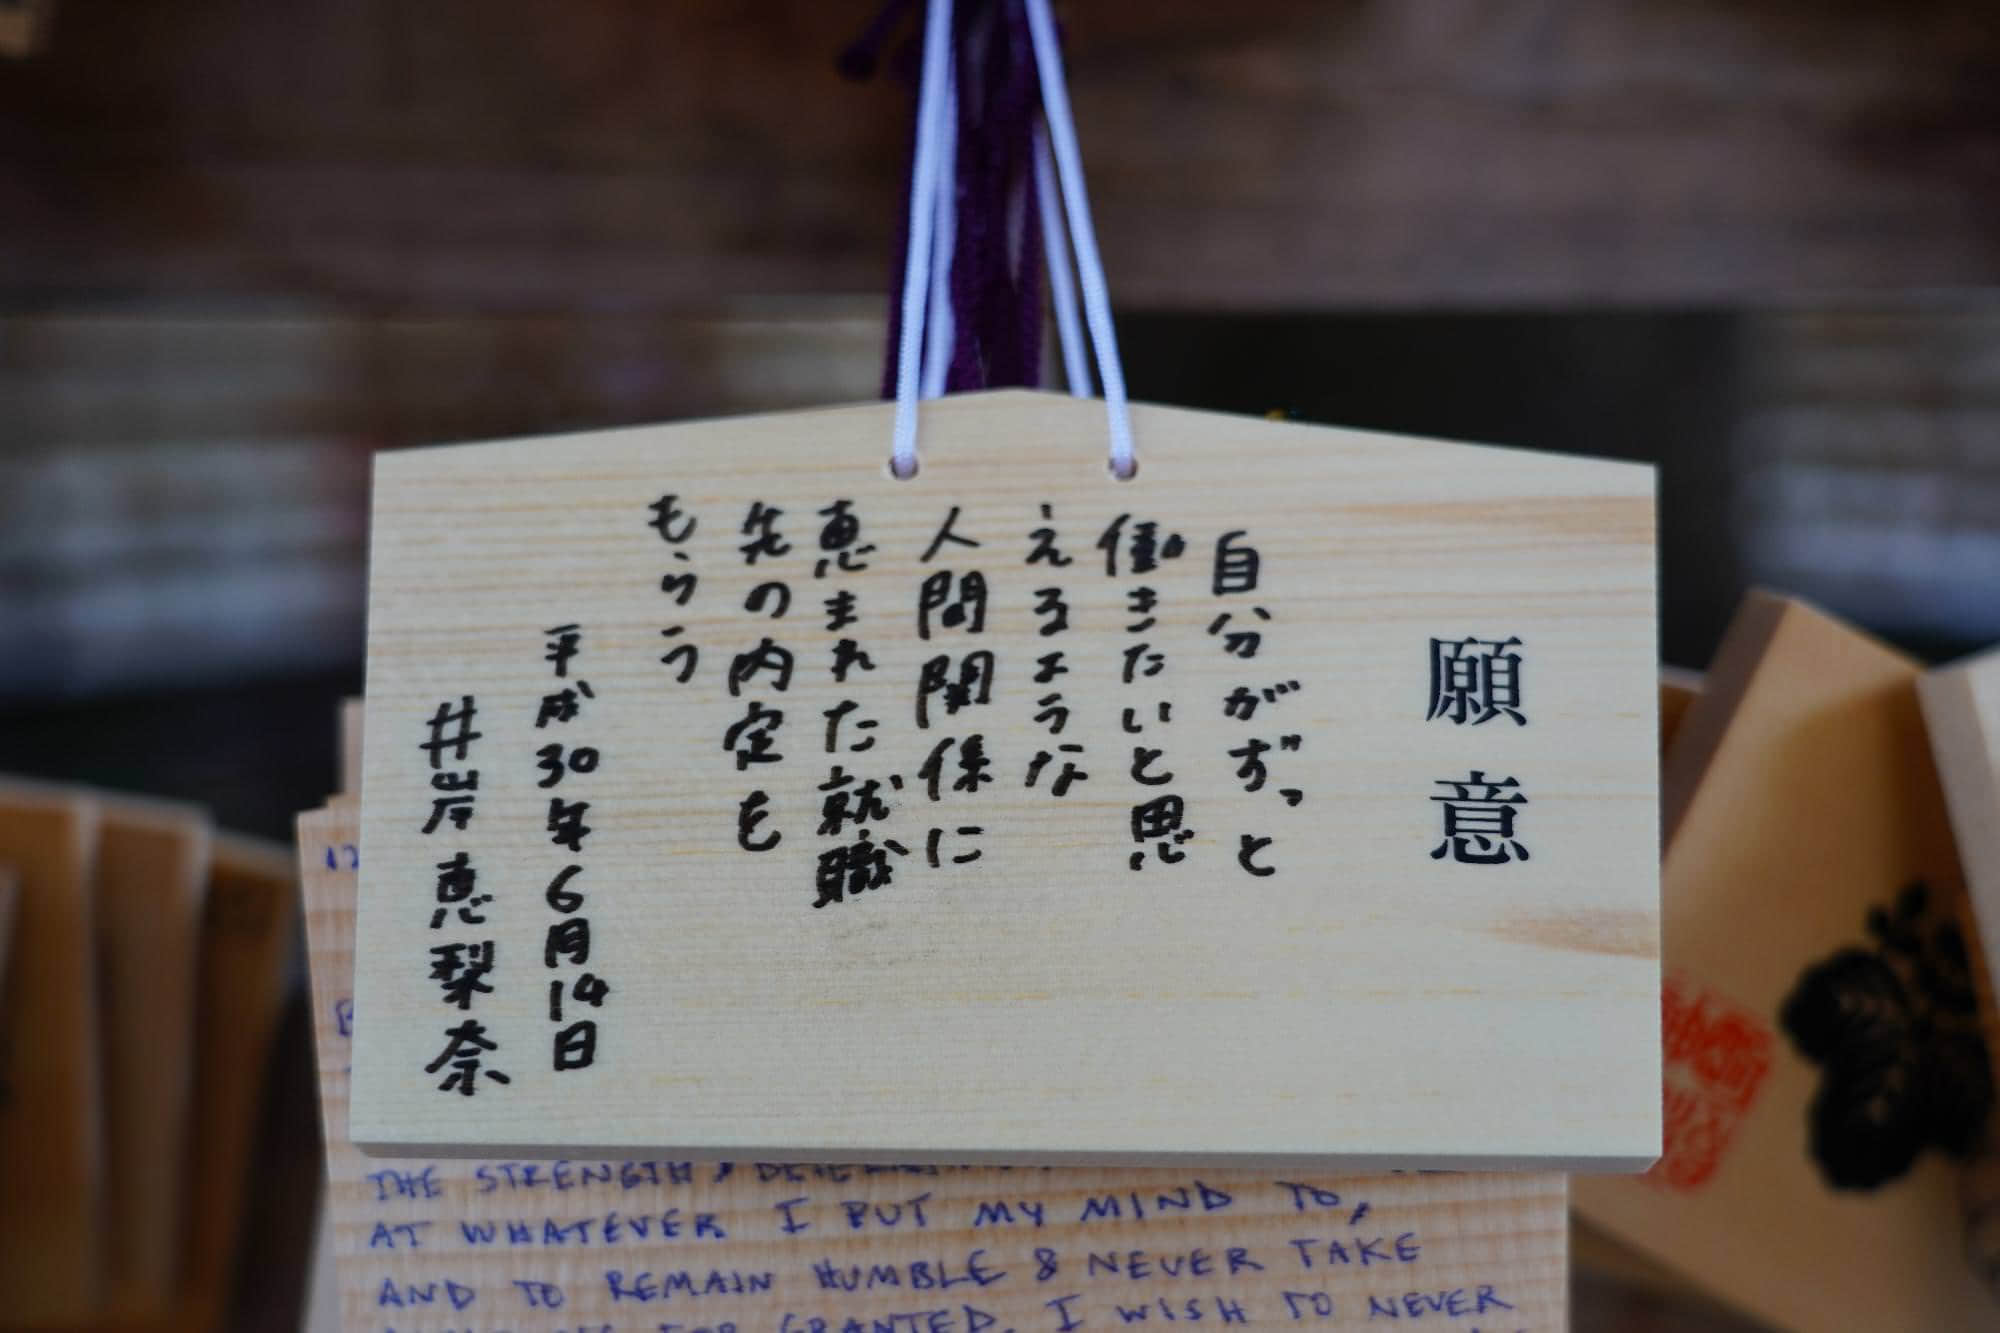 願意
自分がずっと
働きたいと思
えるような
人間関係に
恵まれた就職
先の内定を
もらう
平成30年6月14日
井岸恵梨奈
THE STRENGTH &
AT WHATEVER I PUT MY MIND TO,
AND TO REMAIN HUMBLE & NEVER TAKE
FOR GRANTED. I WISH TO NEVER